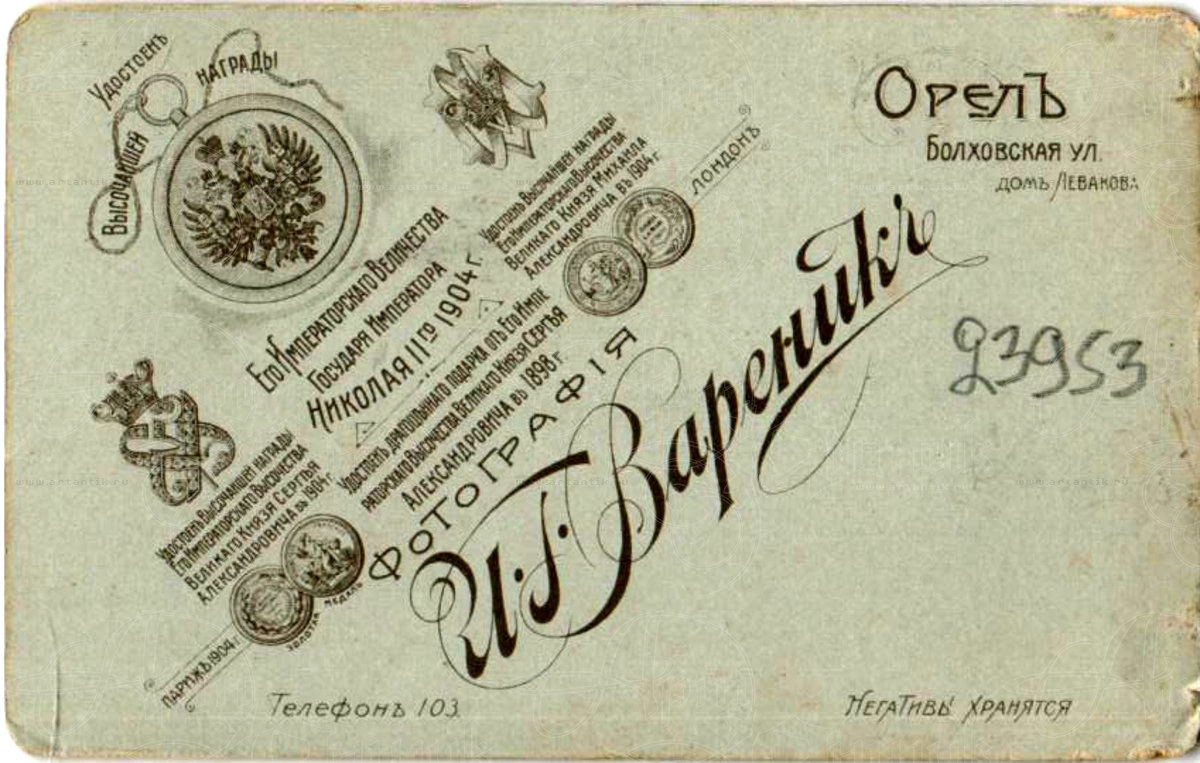 Удостоенъ
Высочайшей
награды
Его Императорскаго Величества
Государя Императора
Николая IIго 1904 г.
Удостоенъ Высочайшей награды
Его Императорскаго Высочества
Великаго Князя Михаила
Александровича въ 1904 г.
Лондонъ
Удостоенъ драгоцѣннаго подарка отъ Его Импе
раторскаго Высочества Великаго Князя Сергѣя
Александровича въ 1898 г.
Удостоенъ Высочайшей награды
Его Императорскаго Высочества
Великаго Князя Сергѣя
Александровича въ 1904 г.
Парижъ 1904 г.
Золотая медаль
Фотографія
И. Г. Вареникъ
Орелъ
Болховская ул.
домъ Левакова
23953
Телефонъ 103.
Негативы хранятся